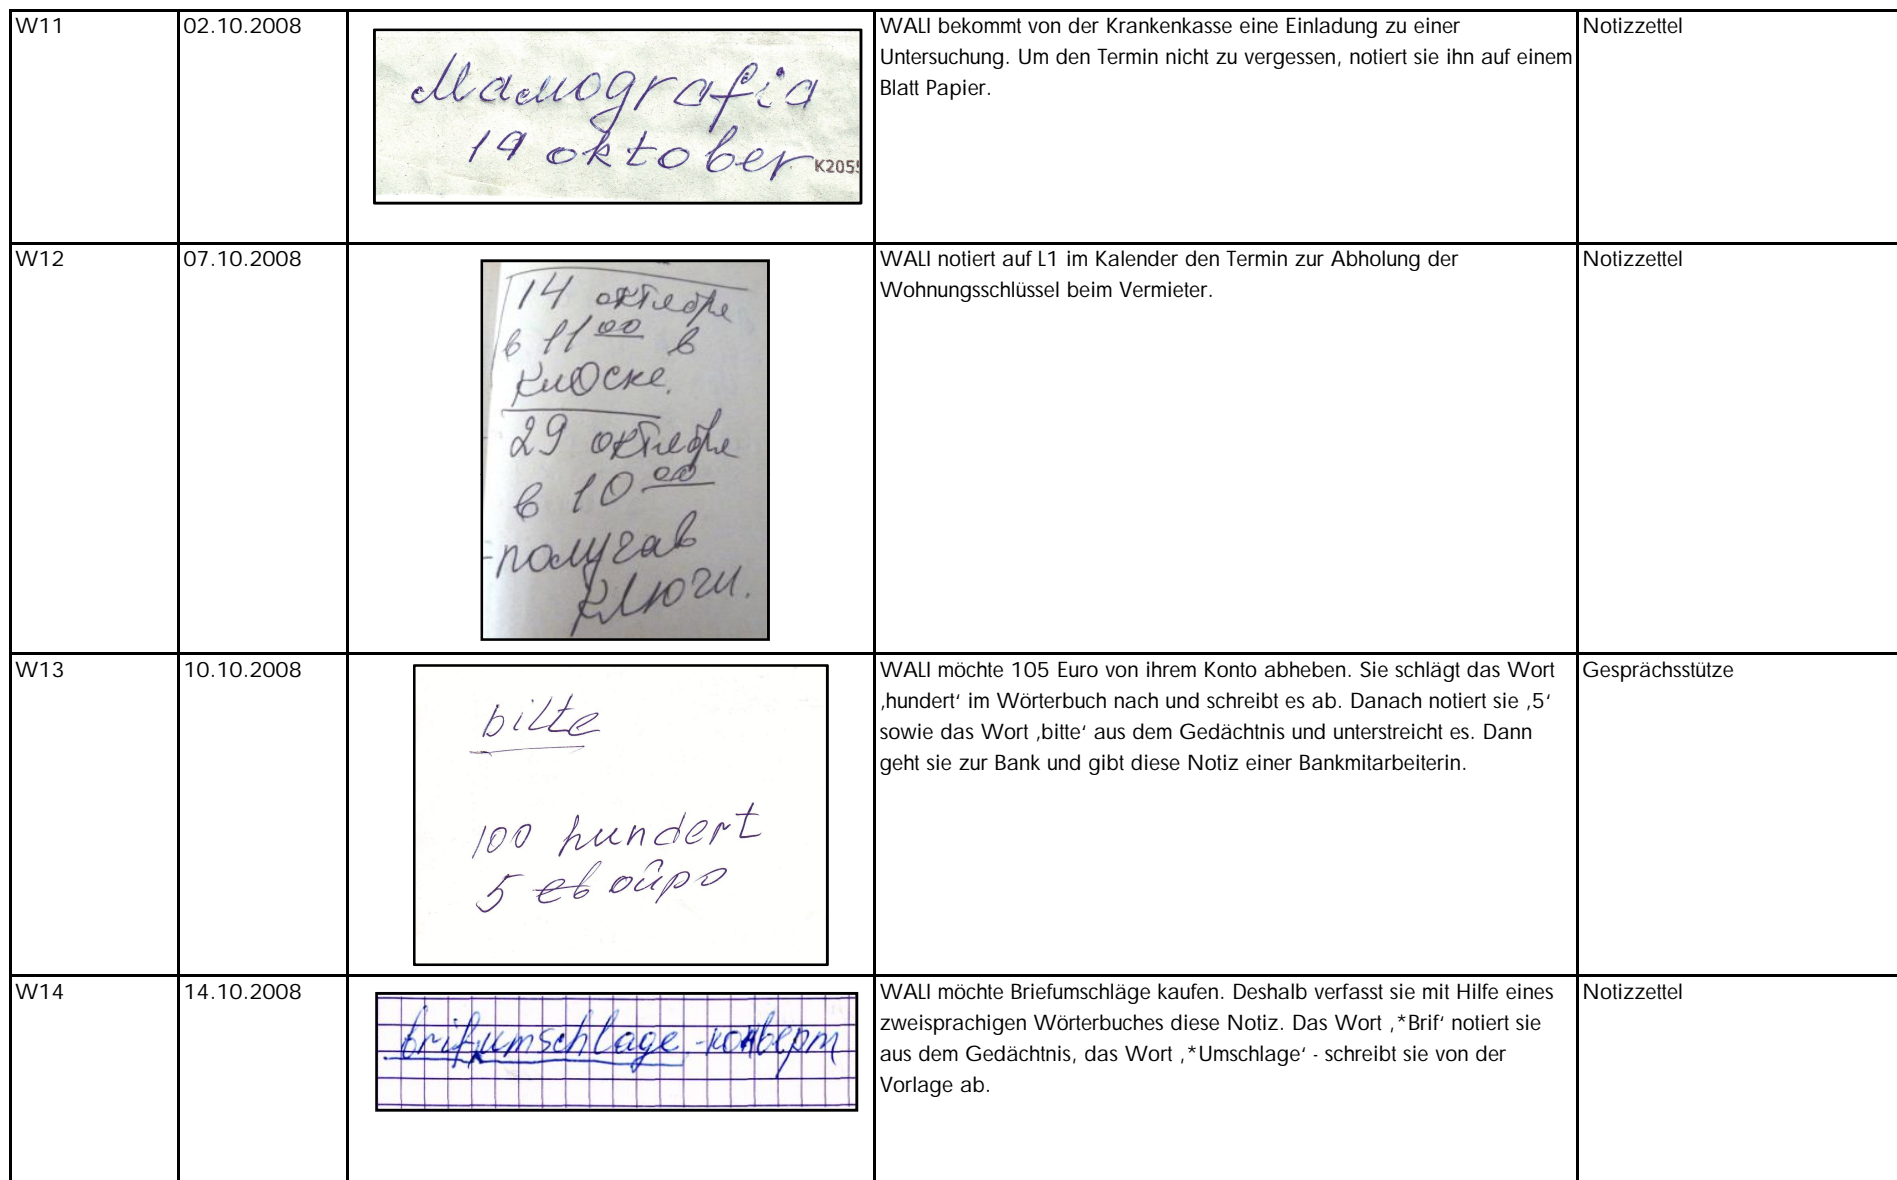 W11
02.10.2008
Mamografia
19 oktober
K205
WALI bekommt von der Krankenkasse eine Einladung zu einer
Untersuchung. Um den Termin nicht zu vergessen, notiert sie ihn auf einem
Blatt Papier.
Notizzettel
W12
07.10.2008
14 октября
в 11 00 в
киоске.
29 октября
в 10 00
-получав
ключи.
WALI notiert auf L1 im Kalender den Termin zur Abholung der
Wohnungsschlüssel beim Vermieter.
Notizzettel
W13
10.10.2008
bitte
100 hundert
5 ев ойро
WALI möchte 105 Euro von ihrem Konto abheben. Sie schlägt das Wort
‚hundert‘ im Wörterbuch nach und schreibt es ab. Danach notiert sie ‚5‘
sowie das Wort ‚bitte‘ aus dem Gedächtnis und unterstreicht es. Dann
geht sie zur Bank und gibt diese Notiz einer Bankmitarbeiterin.
Gesprächsstütze
W14
14.10.2008
brifumschlage -конверт
WALI möchte Briefumschläge kaufen. Deshalb verfasst sie mit Hilfe eines
zweisprachigen Wörterbuches diese Notiz. Das Wort ‚*Brif‘ notiert sie
aus dem Gedächtnis, das Wort ‚*Umschlage‘ - schreibt sie von der
Vorlage ab.
Notizzettel